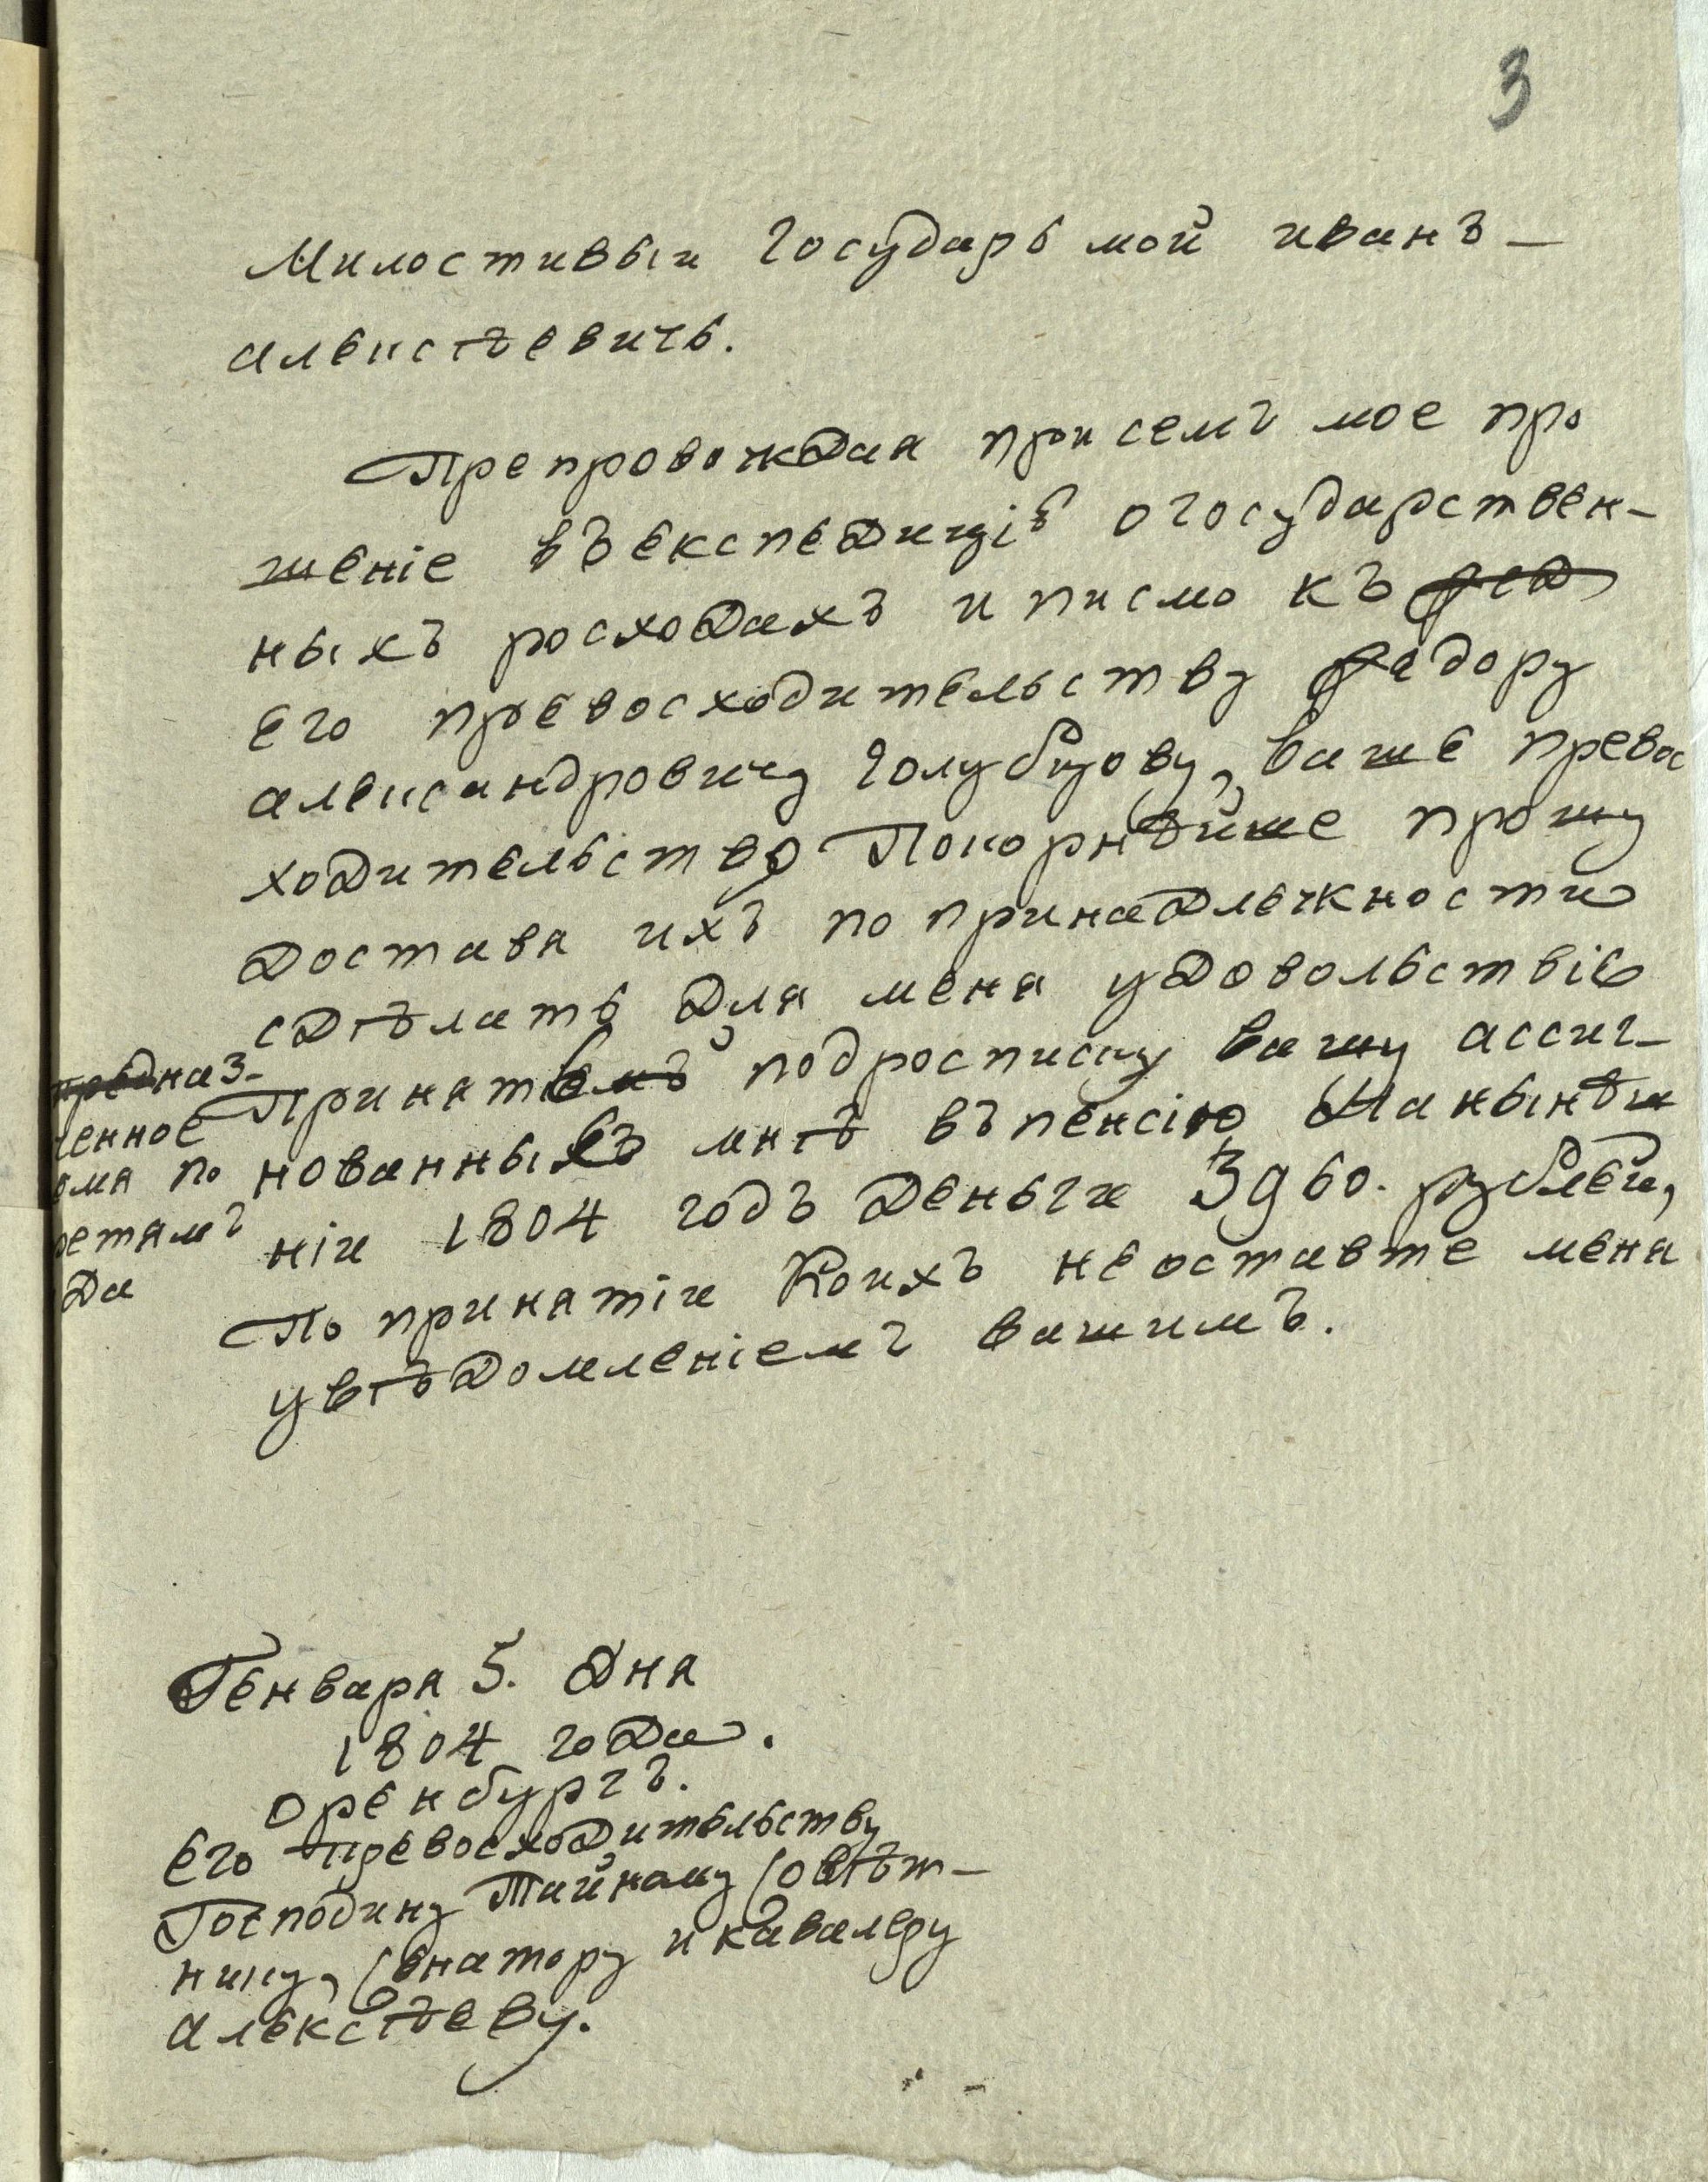 3
Милостивыи Государь мой иванъ –
алексѣевичь.
Препровождая при семъ мое про
шеніе въ експедицію о государствен-
ныхъ росходахъ и писмо къ фед
его превосходительству федору
александровичу Голубцову, ваше превос
ходительство Покорнѣйше прошу
доставя ихъ по принадлежности
сдѣлать для меня удовольствіе
Принять подросписку вашу ассиг-
нованныхъ мнѣ въ пенсію на нынѣш
ніи 1804 годъ деньги 3960. рублеи,
По принятіи Коихъ не оставте меня
увѣдомленіемъ вашимъ.
предназ-
ченное
ома по
ретямъ
да
Генваря 5. Дня
1804 года.
оренбургъ.
Его превосходительству
Господину Тайному Совѣт-
нику, Сенатору и кавалеру
алексѣеву.